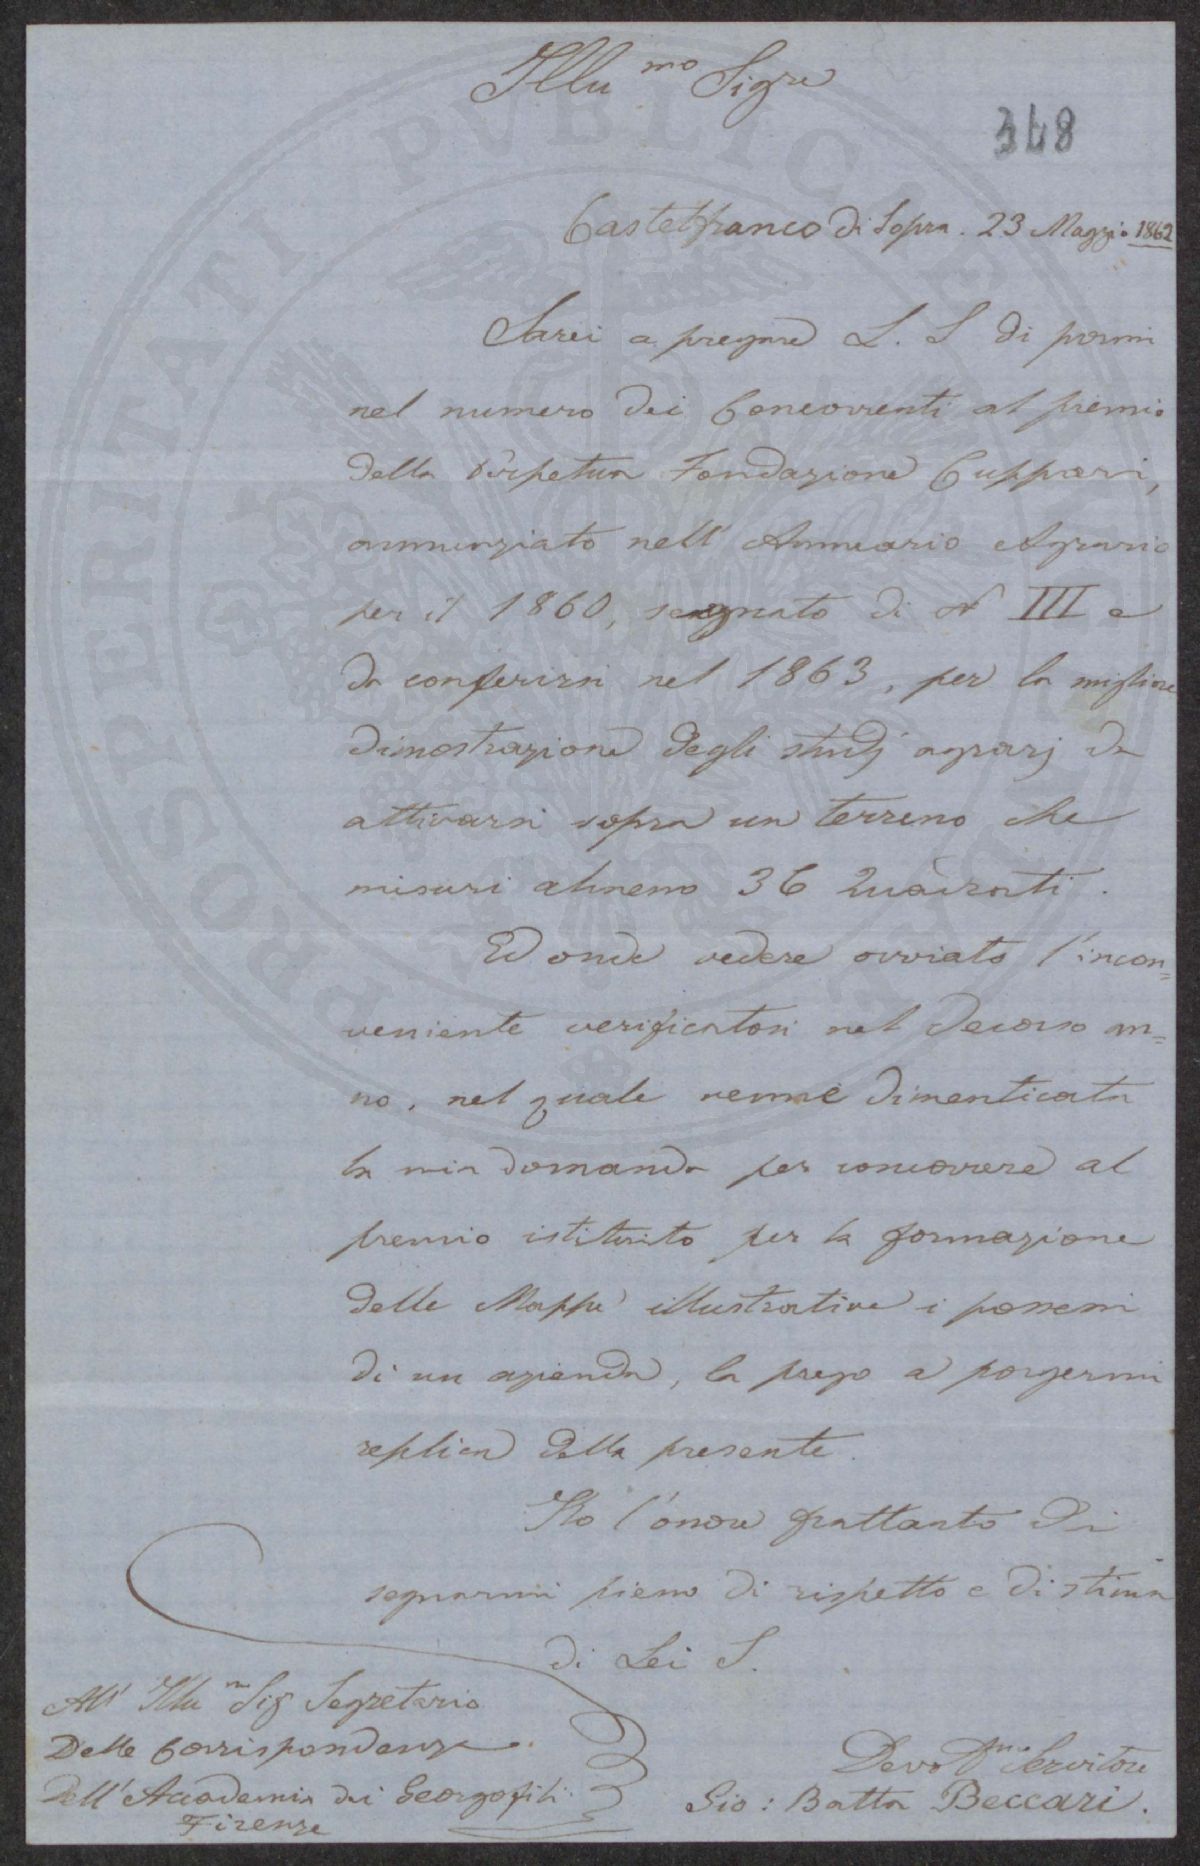 Illu mo Sigre
348
Castelfranco di Sopra. 23 Maggio 1862
Sarei a pregare L. S di pormi
nel numero dei Concorrenti al premio
della Perpetua Fondazione Cuppari,
annunziato nell' Annuario Agrario
per il 1860, segnato di N III e
da conferirsi nel 1863, per la migliore
dimostrazione degli studj agrarj da
attivarsi sopra un terreno che
misuri almeno 36 Quadrati.
Ed onde vedere ovviato l'incon=
veniente verificatosi nel decorso an=
no, nel quale venne dimenticata
la mia domanda per concorrere al
premio istituito per la formazione
delle Mappe illustrative i possessi
di un azienda, la prego a porgermi
replica della presente.
Ho l'onore frattanto di
segnarmi pieno di rispetto e di stima
di Lei S.
All' Illu mo Sig Segretario
Delle Corrispondenze
Dell' Accademia dei Georgofili
Firenze
Devot mo Servitore
Gio: Batta Beccari.
PROSPERITATI PVBLICAE AVGENDAE